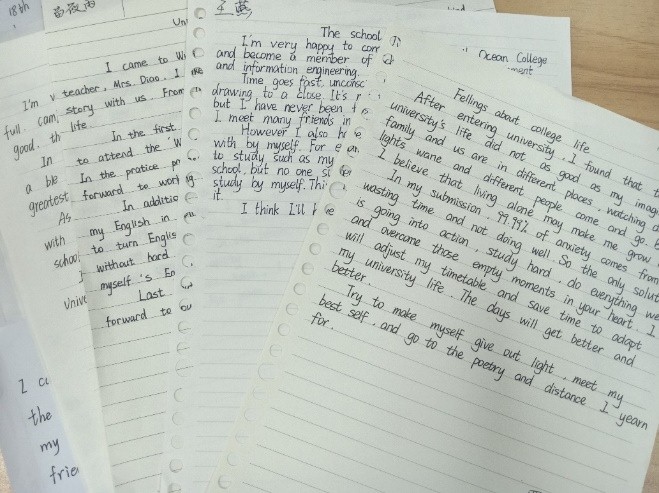 18th
Uni
I came to W
I'm v teacher, Mrs. Diao. I
full. cam, story with us. From
good. th life.
In In the first
a ble to attend the W
greatest In the pratice pr
As forward to work
with In additio
school my English in
to turn Englis
without hard
Unive myself's En
Last
forward to ou
I ca
the
my
frie
The school
I'm very happy to com
and become a member of
and information engineering.
Time goes fast, unconsc
drawing to a close. It's
but I have never been
I meet many friends in
However I also
with by myself. For
to study such as my
school, but no one
study by myself. Thi
it.
I think I'll
Ocean College
ment
Fellings about college life
After entering university, I found that t
university's life did not as good as my imag
family and us are in different places, watching d
lights wane and different people come and go. B
I believe that living alone may make me grow
In my submission, 99.99% of anxiety comes from
wasting time and not doing well. So the only solut
is going into action, study hard, do everything we
and overcome those empty moments in your heart. I
will adjust my timetable and save time to adapt
my university life. The days will get better and
better.
Try to make myself give out light, meet my
best self, and go to the poetry and distance I yearn
for.